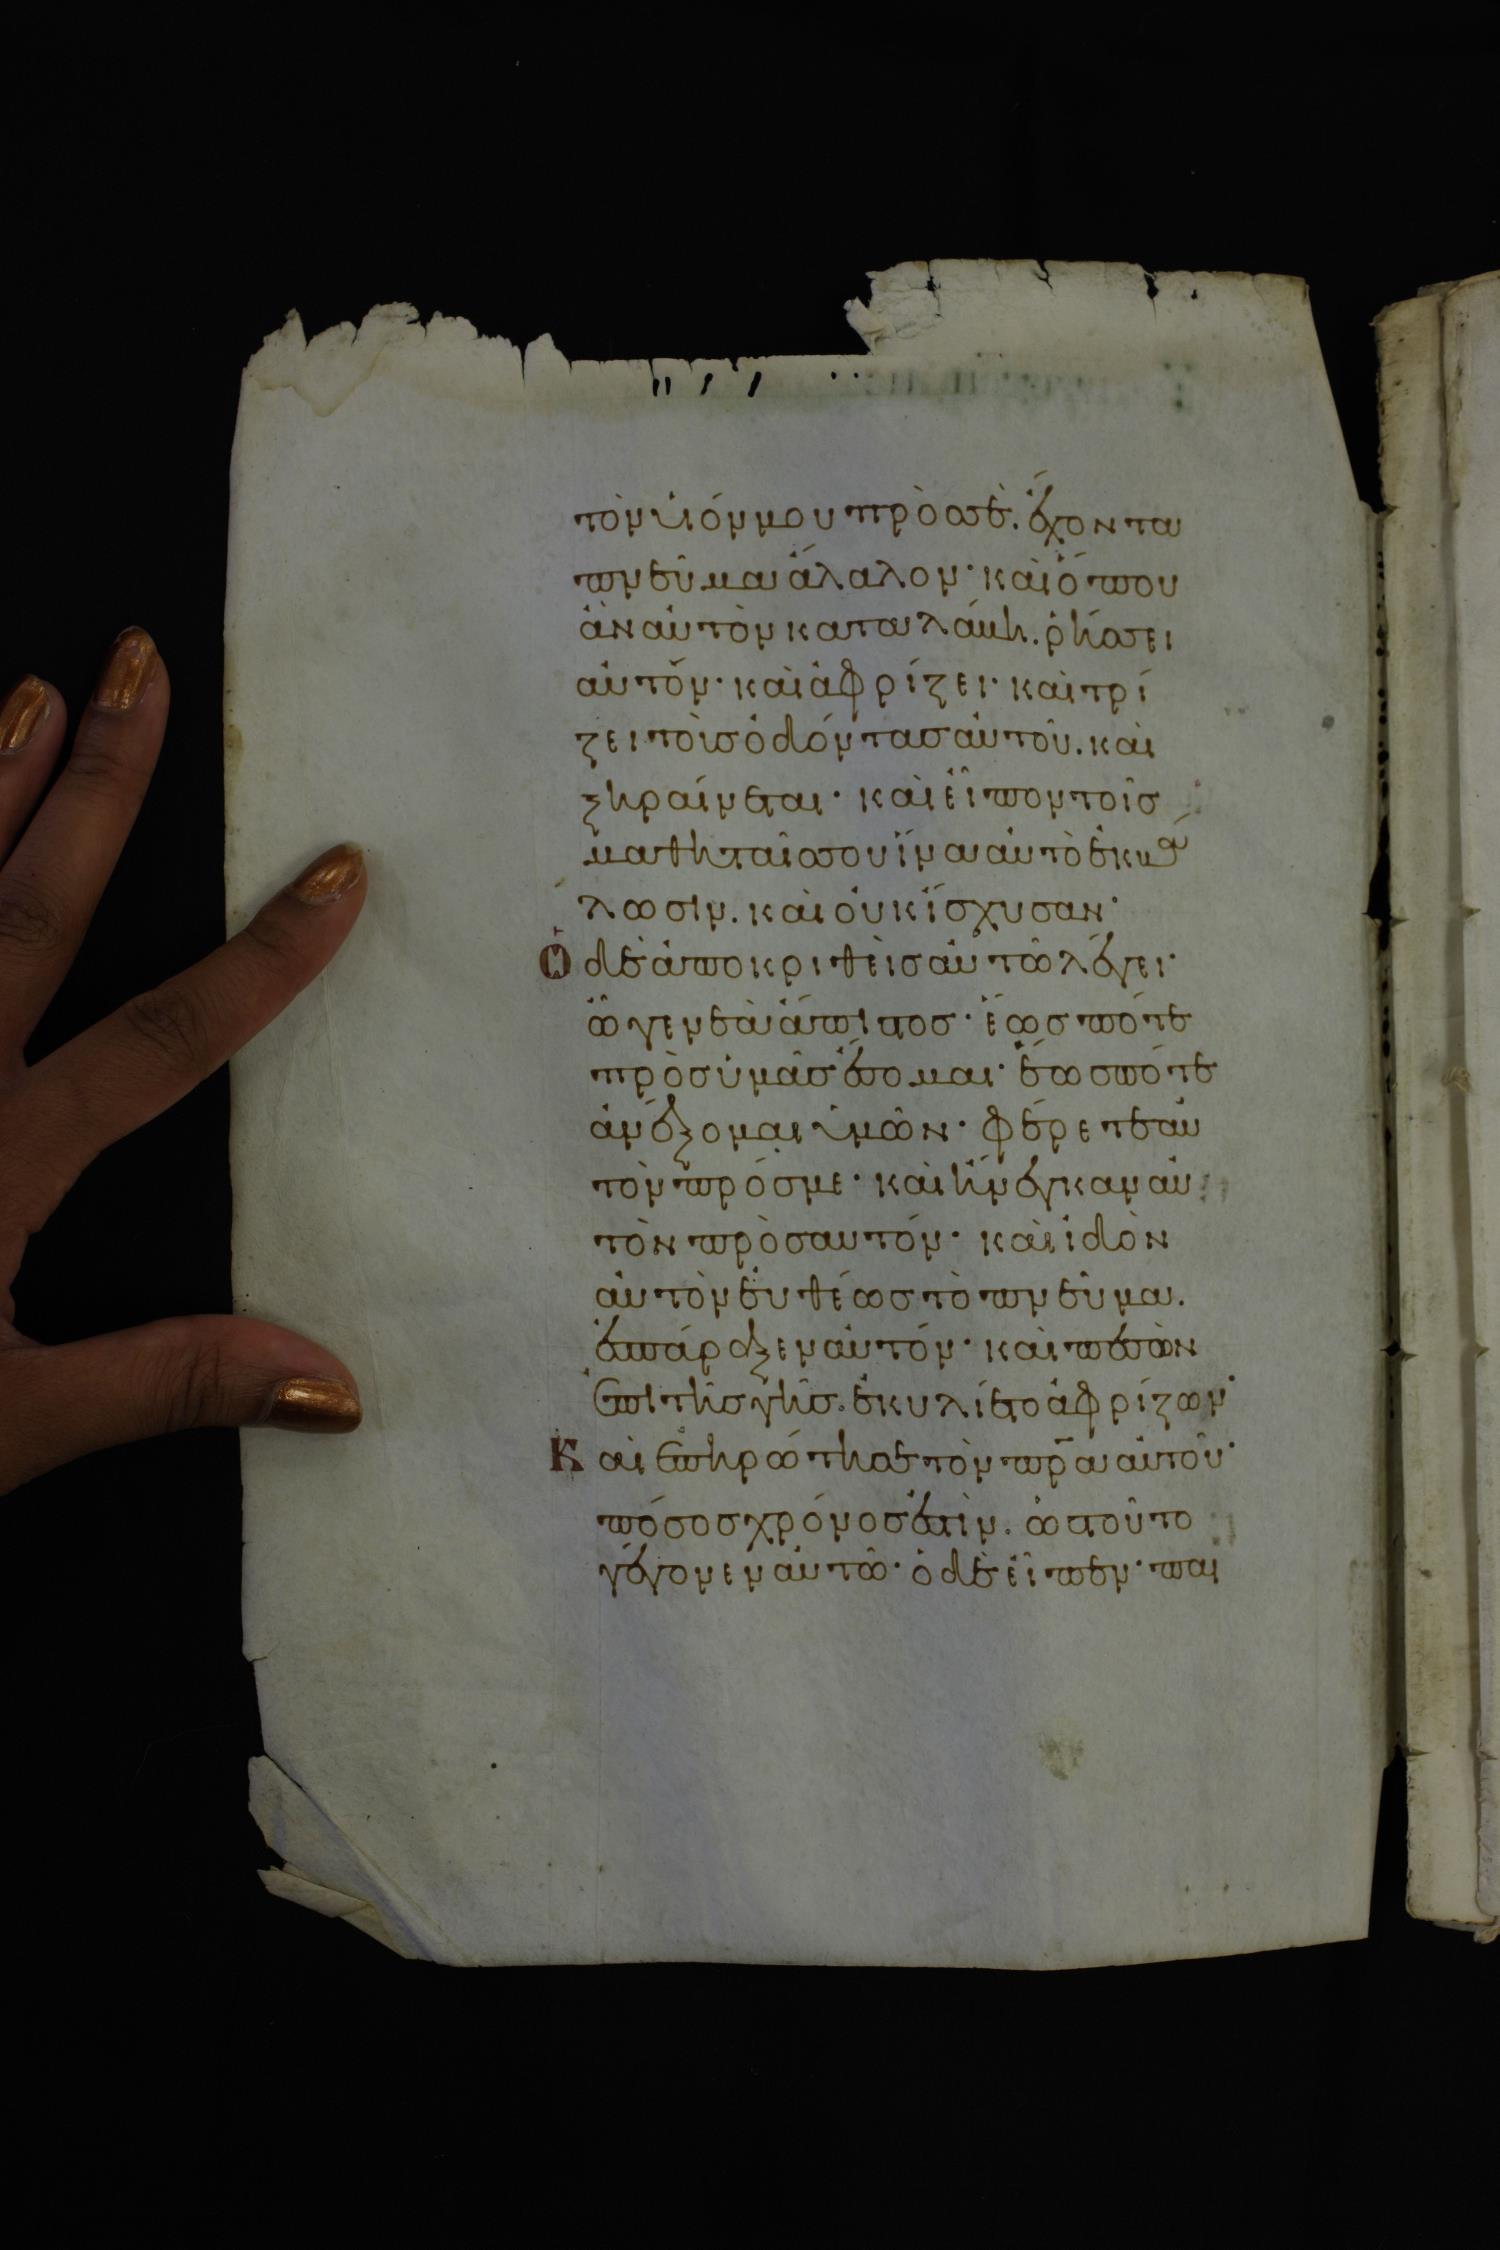 τὸν υἱόν μου πρὸς σὲ. ἔχοντα
πνεῦμα ἄλαλον· καὶ ὅπου
ἂν αὐτὸν καταλάβη. ῥήσσει
αὐτόν· καὶ ἀφρίζει· καὶ τρί
ζει τοὺς ὀδόντας αὐτοῦ. καὶ
ξηραίνεται· καὶ εἶπον τοῖς
μαθηταῖς σου ἵνα αὐτὸ ἐκβά
λωσιν. καὶ οὐκ ἴσχυσαν·
Ὁ δὲ ἀποκριθεὶς αὐτῶ λέγει·
ὦ γενεὰ ἄπιστος· ἕως πότε
πρὸς ὑμᾶς ἔσομαι· ἕως πότε
ἀνέξομαι ὑμῶν· φέρετε αὐ
τὸν πρός με· καὶ ἤνεγκαν αὐ
τὸν πρὸς αυτόν· καὶ ἰδὸν
αὐτὸν εὐθέως τὸ πνεῦμα.
ἐσπάραξεν αὐτόν· καὶ πεσὼν
ἐπὶ τῆς γῆς. ἐκυλίετο ἀφρίζων·
Καὶ ἐπηρώτησε τὸν πρ̅α αὐτοῦ·
πόσος χρόνος ἐστὶν. ὡς τοῦτο
γέγονεν αὐτῶ· ὁ δὲ εἶπεν· παι